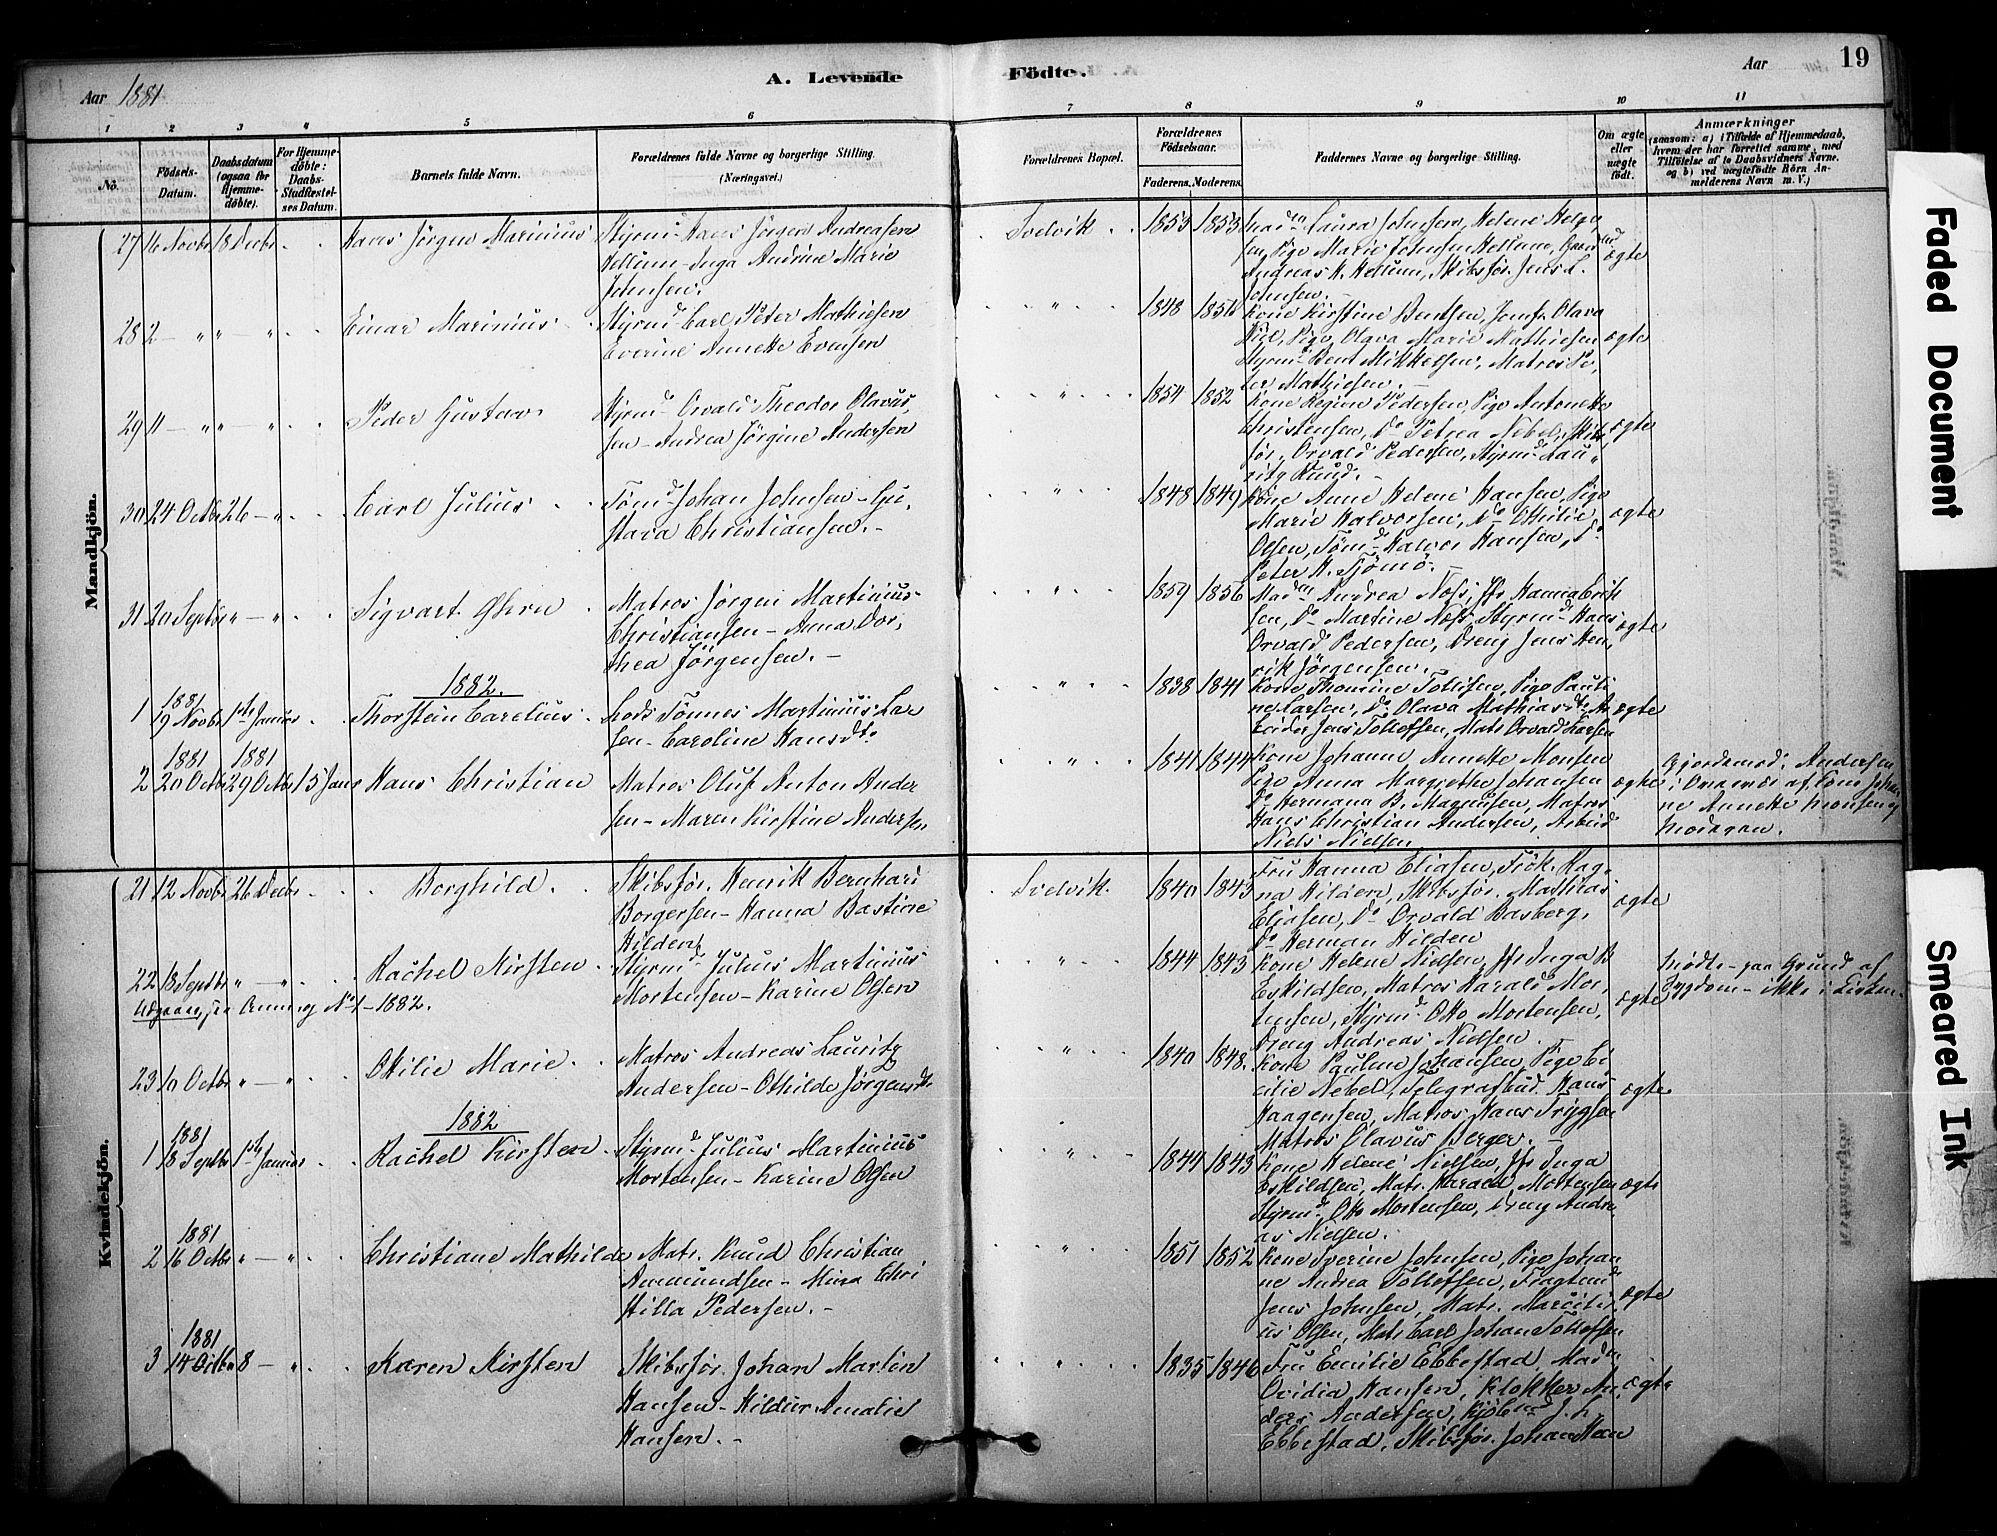 Aar 1881
A. Levende Födte.
Aar 19
1 2 3 4 5 6 7 8 9 10 11
No.
Födsels-Datum.
Daabsdatum (ogsaa for Hjemme-döbte).
For Hjemme-döbte: Daabs-Stadfæstel-ses Datum.
Barnets fulde Navn.
Forældrenes fulde Navne og borgerlige Stilling. (Næringsvei.)
Forældrenes Bopæl.
Forældrenes Födselsaar.
Faderens. Moderens.
Faddernes Navne og borgerlige Stilling.
Om ægte eller uægte födt.
Anmærkninger
(saasom: a) i Tilfælde af Hjemmedaab, hvem der har forrettet samme, med Tilföielse af to Daabsvidners Navne. og b) ved uægtefödte Börn Anmelderens Navn m. V.)
Mandkjön.
27 16 Novbr 18 Decbr Hans Jörgen Marinius
Styrmd Hans Jörgen Andreasen
Hellum - Inga Andrine Marie
Johnsen.
Svelvik 1853 1853
Madm Laura Johnsen, Helene Helge
sen, Pige Marie Johnsen Hellum, Gaardmd
Andreas H. Hellum, Skibsfør. Jens L.
Johnsen. -
ægte
28 2 - " " - " Einar Marinius
Styrmd Carl Peter Mathiesen
Everine Annette Evensen
" 1848 1851
Kone Kirstine Bentsen, Jomfr. Olava
Piil, Pige Olava Marie Mathiesen
Styrmd Bent Mikkelsen, Matros Pe-
ter Mathiesen. -
ægte
29 11 - " " - " Peder Gustav
Styrmd Orvald Theodor Olavus
sen - Andrea Jörgine Andersen
" 1854 1852
Kone Regine Pedersen, Pige Antonette
Christensen, Do Petrea Nebel, Skibs
før. Orvald Pedersen, Styrmd Lau-
ritz Knud. -
ægte
30 24 Octbr 26 - " Carl Julius
Tømd Johan Johnsen - Gu-
stava Christiansen. -
" 1848 1849
Kone Anne Helene Hansen, Pige
Marie Halvorsen, Do Othilie
Olsen, Tømd Halvor Hansen, Do
Peter H. Tjömö. -
ægte
31 20 Septbr " - " Sigvart Ghrn
Matros Jörgen Martinius
Christiansen - Anna Dor,
thea Jörgensen. -
" 1859 1856
Madm Andrea Næss, Jfr Hanna Erik
sen, Do Martine Næss, Styrmd Hans
Orvald Pedersen, Dreng Jens Hen,
rik Jörgensen. -
ægte
1882.
1 1881 19 Novbr 1ste Januar Thorstein Carelius
Lods Tönnes Martinius Lar
sen - Caroline Hansdtr
" 1838 1841
Kone Thomine Tollefsen, Pige Pauli
ne Larsen, Do Olava Mathiasdtr
Jens Tollefsen, Mats Orvald Karsen
ægte
2 1881 20 Octbr 1881 29 Octbr 15 Janr Hans Christian
Matros Oluf Anton Ander
sen - Maren Kirstine Andersen
" 1841 1844
Kone Johanne Annette Monsen
Pige Anna Margrethe Johansen
Do Hermana B. Magnusen, Matros
Hans Christian Andersen, Arbeid
Niels Nielsen
ægte
Gjordemod. Andersen
i Overvær af Kone Johan
ne Annette Monsen og
Moderen.
Kvindekjön.
21 12 Novbr 26 Decbr Borghild.
Skibsfør. Henrik Bernhard
Borgersen - Hanna Bastine
Hilden
Svelvik. 1840 1843
Fru Hanna Eliasen, Frök. Rag-
na Hilden, Skibsfør. Mathias
Eliasen, Do Orvald Basberg,
Do Herman Hilden
ægte
22 18 Septbr " - " Rachel Kirsten
Udgaar, se Anming No 1 - 1882.
Styrmd Julius Martinius
Mortensen - Karine Olsen
" 1844 1843
Kone Helene Nielsen, Jfr Inga B
Eskildsen, Matros Harald Mor
tensen, Styrmd Otto Mortensen,
Dreng Andreas Nielsen. -
ægte
Mødte - paa Grund af
Sygdom - ikke i Kirken.
23 10 Octbr " - " Otilie Marie
Matros Andreas Lauritz
Andersen - Othilde Jörgensdtr
" 1840 1848.
Kone Pauline Johansen, Pige Ce
cilie Nebel, Telegrafbud. Hans
Haagensen, Matros Hans Trygsen
Matros Olavus Berger. -
ægte
1882
1 1881 18 Septbr 1ste Januar Rachel Kirsten
Styrmd Julius Martinius
Mortensen - Karine Olsen
" 1844 1843
Kone Helene Nielsen, Jfr Inga
Eskildsen, Matr. Harald Mortensen
Styrmd Otto Mortensen, Dreng Andre
as Nielsen.
ægte
2 1881 16 Octbr " - " Christiane Mathilde
Matr. Knud Christian
Ammundsen - Mina Chri
stilla Pedersen. -
" 1851 1852
Kone Severine Johnsen, Pige Johan
ne Andrea Tollefsen, Fragtemd
Jens Johnsen, Matr. Marceli
us Olsen, Matr Carl Johan Tollefsen
ægte
3 1881 14 Octbr 8 - " Karen Kirsten
Skibsfør. Johan Martin
Hansen - Hildur Amalie
Hansen. -
" 1835 1846
Fru Emilie Ebbestad, Madm
Ovidia Hansen, Klokker An
ders Andersen, Kjöbmd J. H.
Ebbestad, Skibsfør. Johan Han
ægte
Faded Document
Smeared Ink